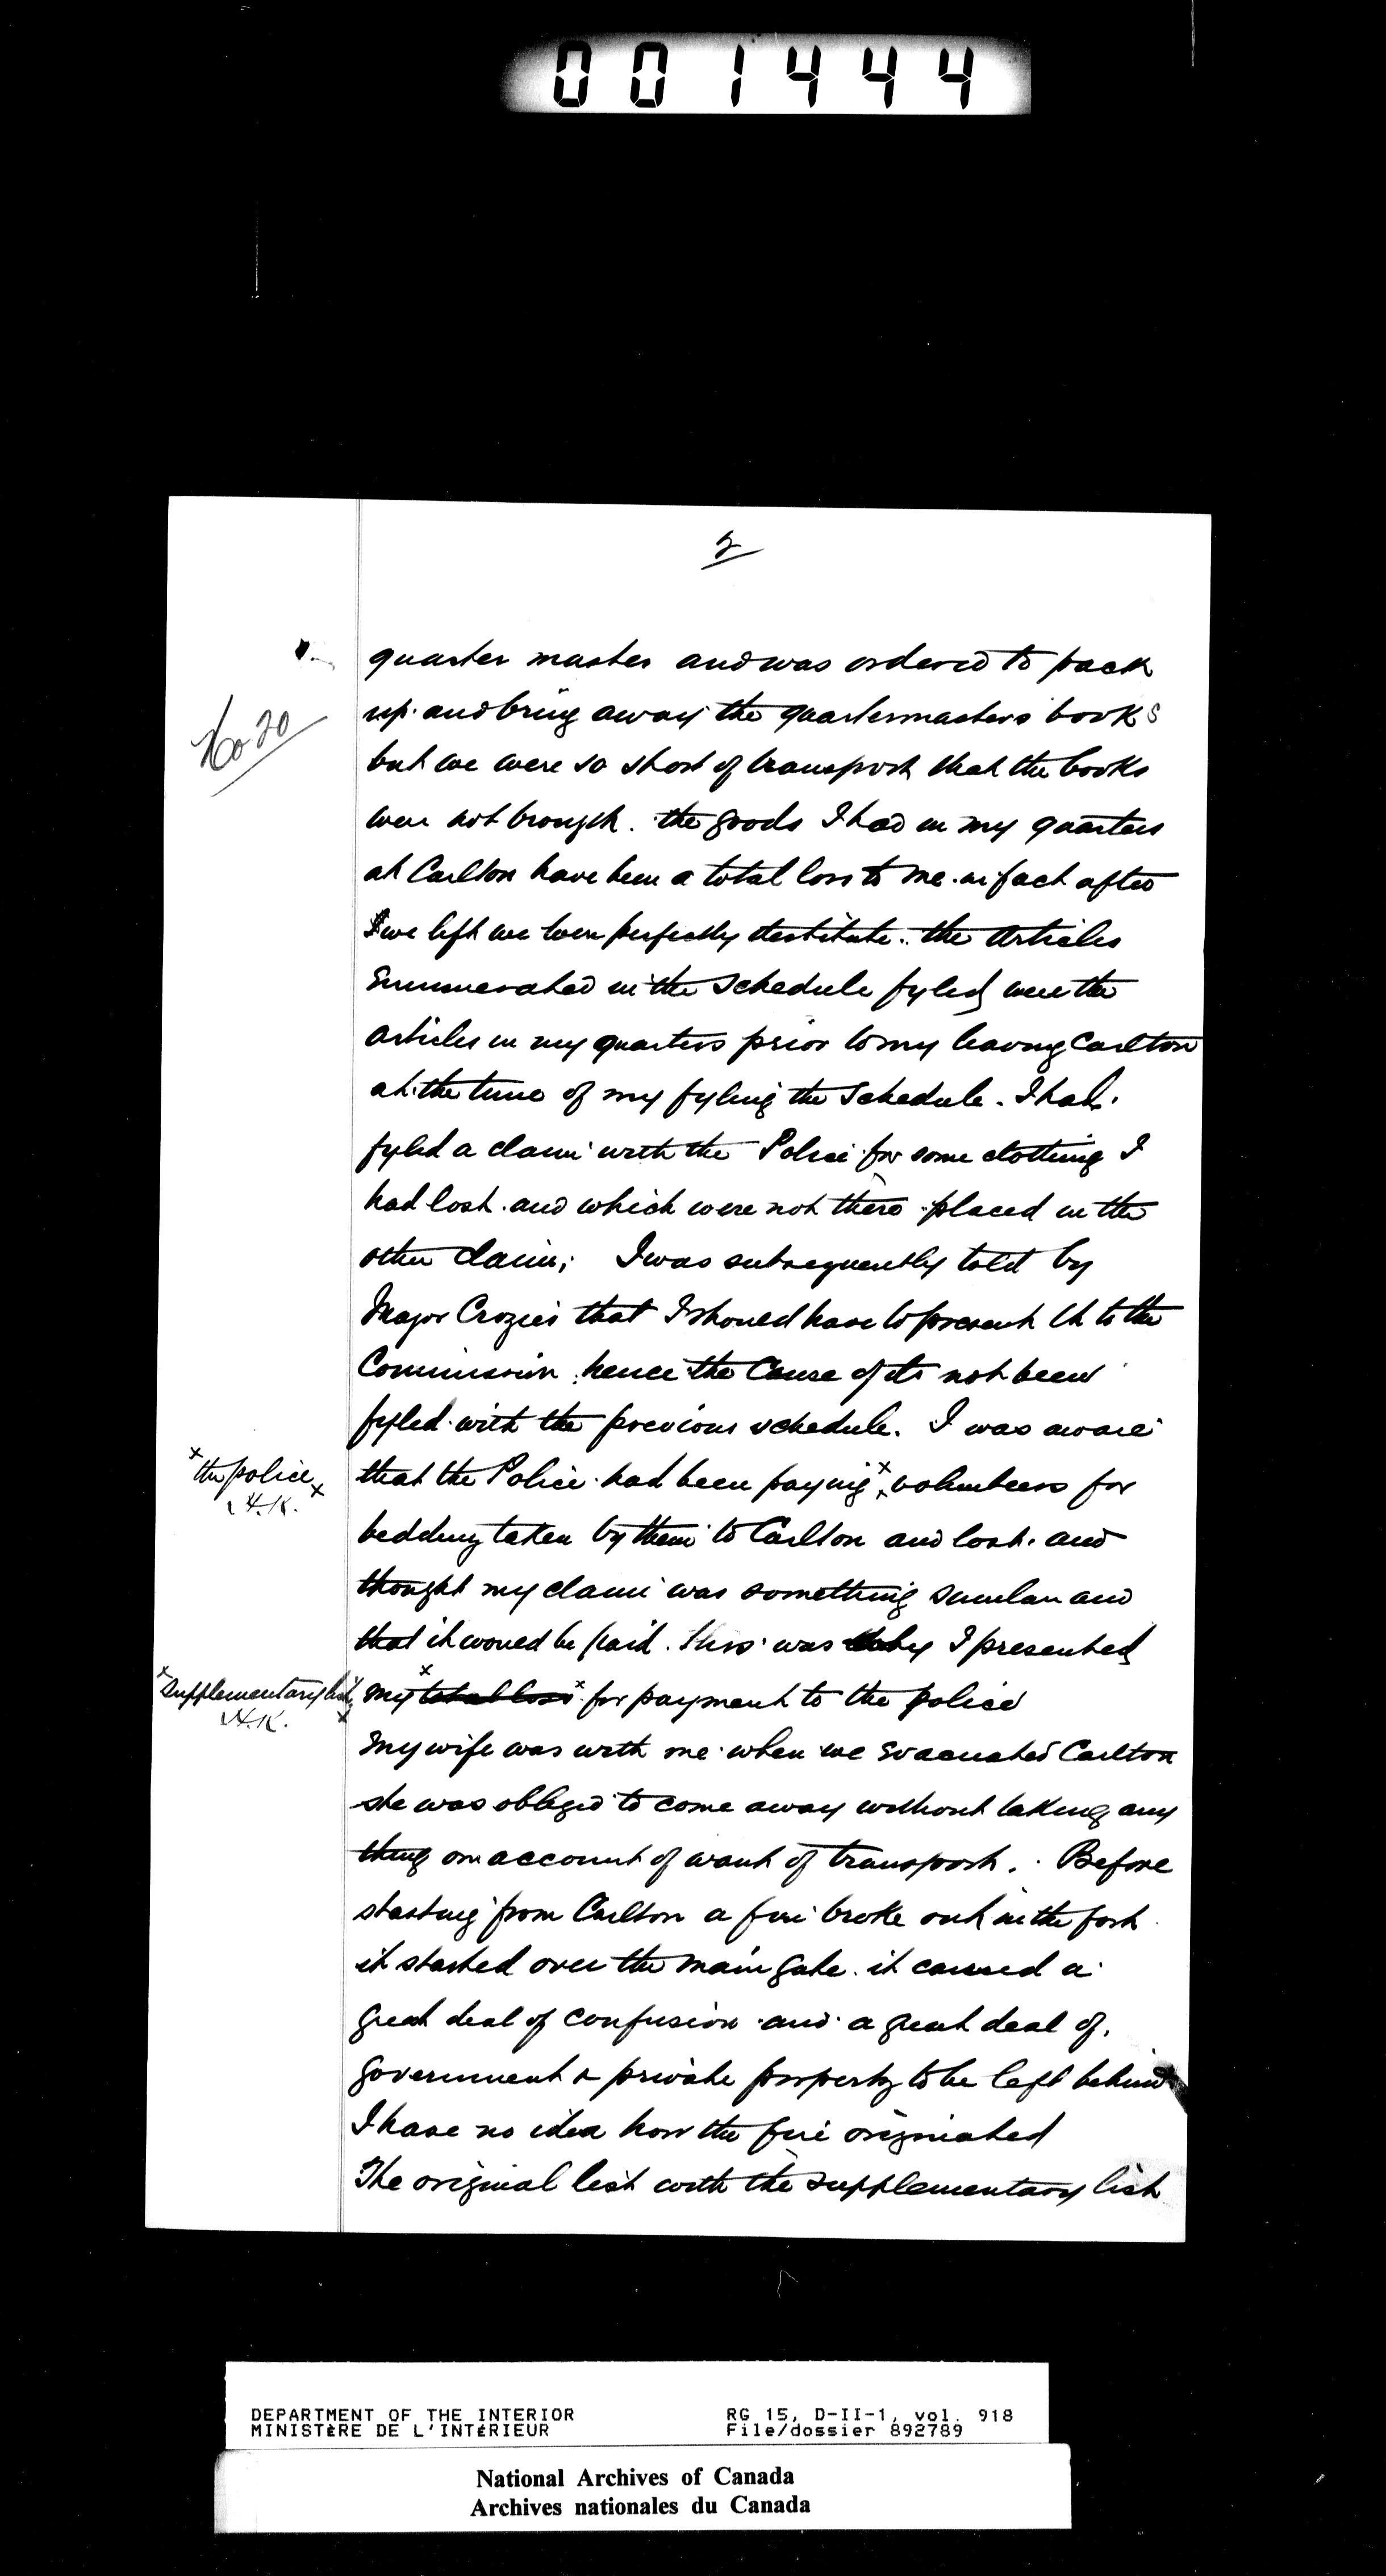 001444
2
quarter master and was ordered to pack
No 20
up and bring away the quartermasters books
but we were so short of transport that the books
were not brought. the goods I had in my quarters
at Carlton have been a total loss to me in fact after
we left we were perfectly destitute. the articles
enumerated in the schedule fyled were the
articles in my quarters prior to my leaving Carlton
at the time of my fyling the schedule. I had
fyled a claim with the Police for some clothing I
had lost and which were not there placed in the
other claim; I was subsequently told by
Major Crozier that I should have to present it to the
Commission hence the Cause of its not been
fyled with the previous schedule. I was aware
x the police x
H.K.
that the Police had been paying x volunteers for
bedding taken by them to Carlton and lost. and
thought my claim was something similar and
that it would be paid. this was why I presented
x supplementary list x
H.K.
my x total loss x for payment to the police
My wife was with me when we evacuated Carlton
she was obliged to come away without taking any
thing on account of want of transport. Before
starting from Carlton a fire broke out in the fort
it started over the main gate. it caused a
great deal of confusion and a great deal of
government & private property to be left behind
I have no idea how the fire originated
The original list with the supplementary list
DEPARTMENT OF THE INTERIOR RG 15, D-II-1, vol. 918
MINISTÈRE DE L'INTÉRIEUR File/dossier 892789
National Archives of Canada
Archives nationales du Canada